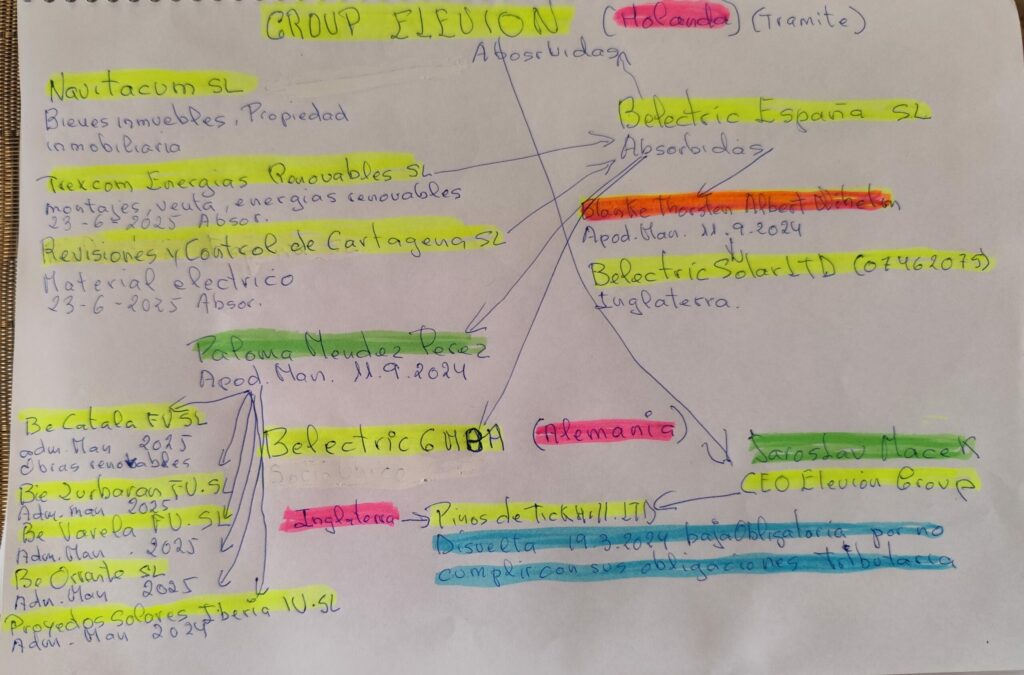 GROUP ELEVION (Holanda) (Tramite)
Abosrbidas
Navitacum SL
Bienes inmuebles, Propiedad
inmobiliaria
Trexcom Energias Renovables SL
montajes, venta, energias renovables
23-6-2025 Absor.
Revisiones y Control de Cartagena SL
Material electrico
23-6-2025 Absor.
Belectric España SL
Absorbidas
Blanke Thorsten Albert
Apod. Man. 11.9.2024
Belectric Solar LTD (07462075)
Inglaterra.
Paloma Mendez Perez
Apod. Man. 11.9.2024
Be Catala FV SL
adm. Man 2025
Obras renovables
Be Zurbaran FV. SL
Adm. man 2025
Be Varela FV. SL
Adm. Man. 2025
Be Orrante SL
Adm. Man 2025
Proyedos Solores Iberia IV. SL
Adm. Man 2024
Belectric GMBH (Alemania)
Socio Unico
Jaroslav Macek
CEO Elevion Group
Inglaterra
Pinos de TickHill. LTD
Disuelta 19.3.2024 baja Obligatoria por no
cumplir con sus obligaciones tributaria